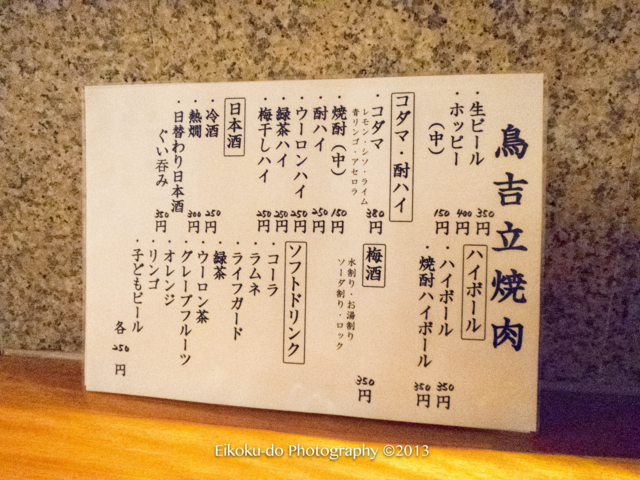 鳥吉立焼肉
・生ビール 350円
・ホッピー 400円
(中) 150円
ハイボール
・ハイボール 350円
・焼酎ハイボール 350円
コダマ・酎ハイ
・コダマ 380円
レモン・シソ・ライム
青リンゴ・アセロラ
・焼酎(中) 150円
・酎ハイ 250円
・ウーロンハイ 250円
・緑茶ハイ 250円
・梅干しハイ 250円
梅酒
水割り・お湯割り
ソーダ割り・ロック
350円
日本酒
・冷酒 250円
・熱燗 300円
・日替わり日本酒
ぐい呑み 350円
ソフトドリンク
・コーラ
・ラムネ
・ライフガード
・緑茶
・ウーロン茶
・グレープフルーツ
・オレンジ
・リンゴ
・子どもビール
各250円
Eikoku-do Photography ©2013